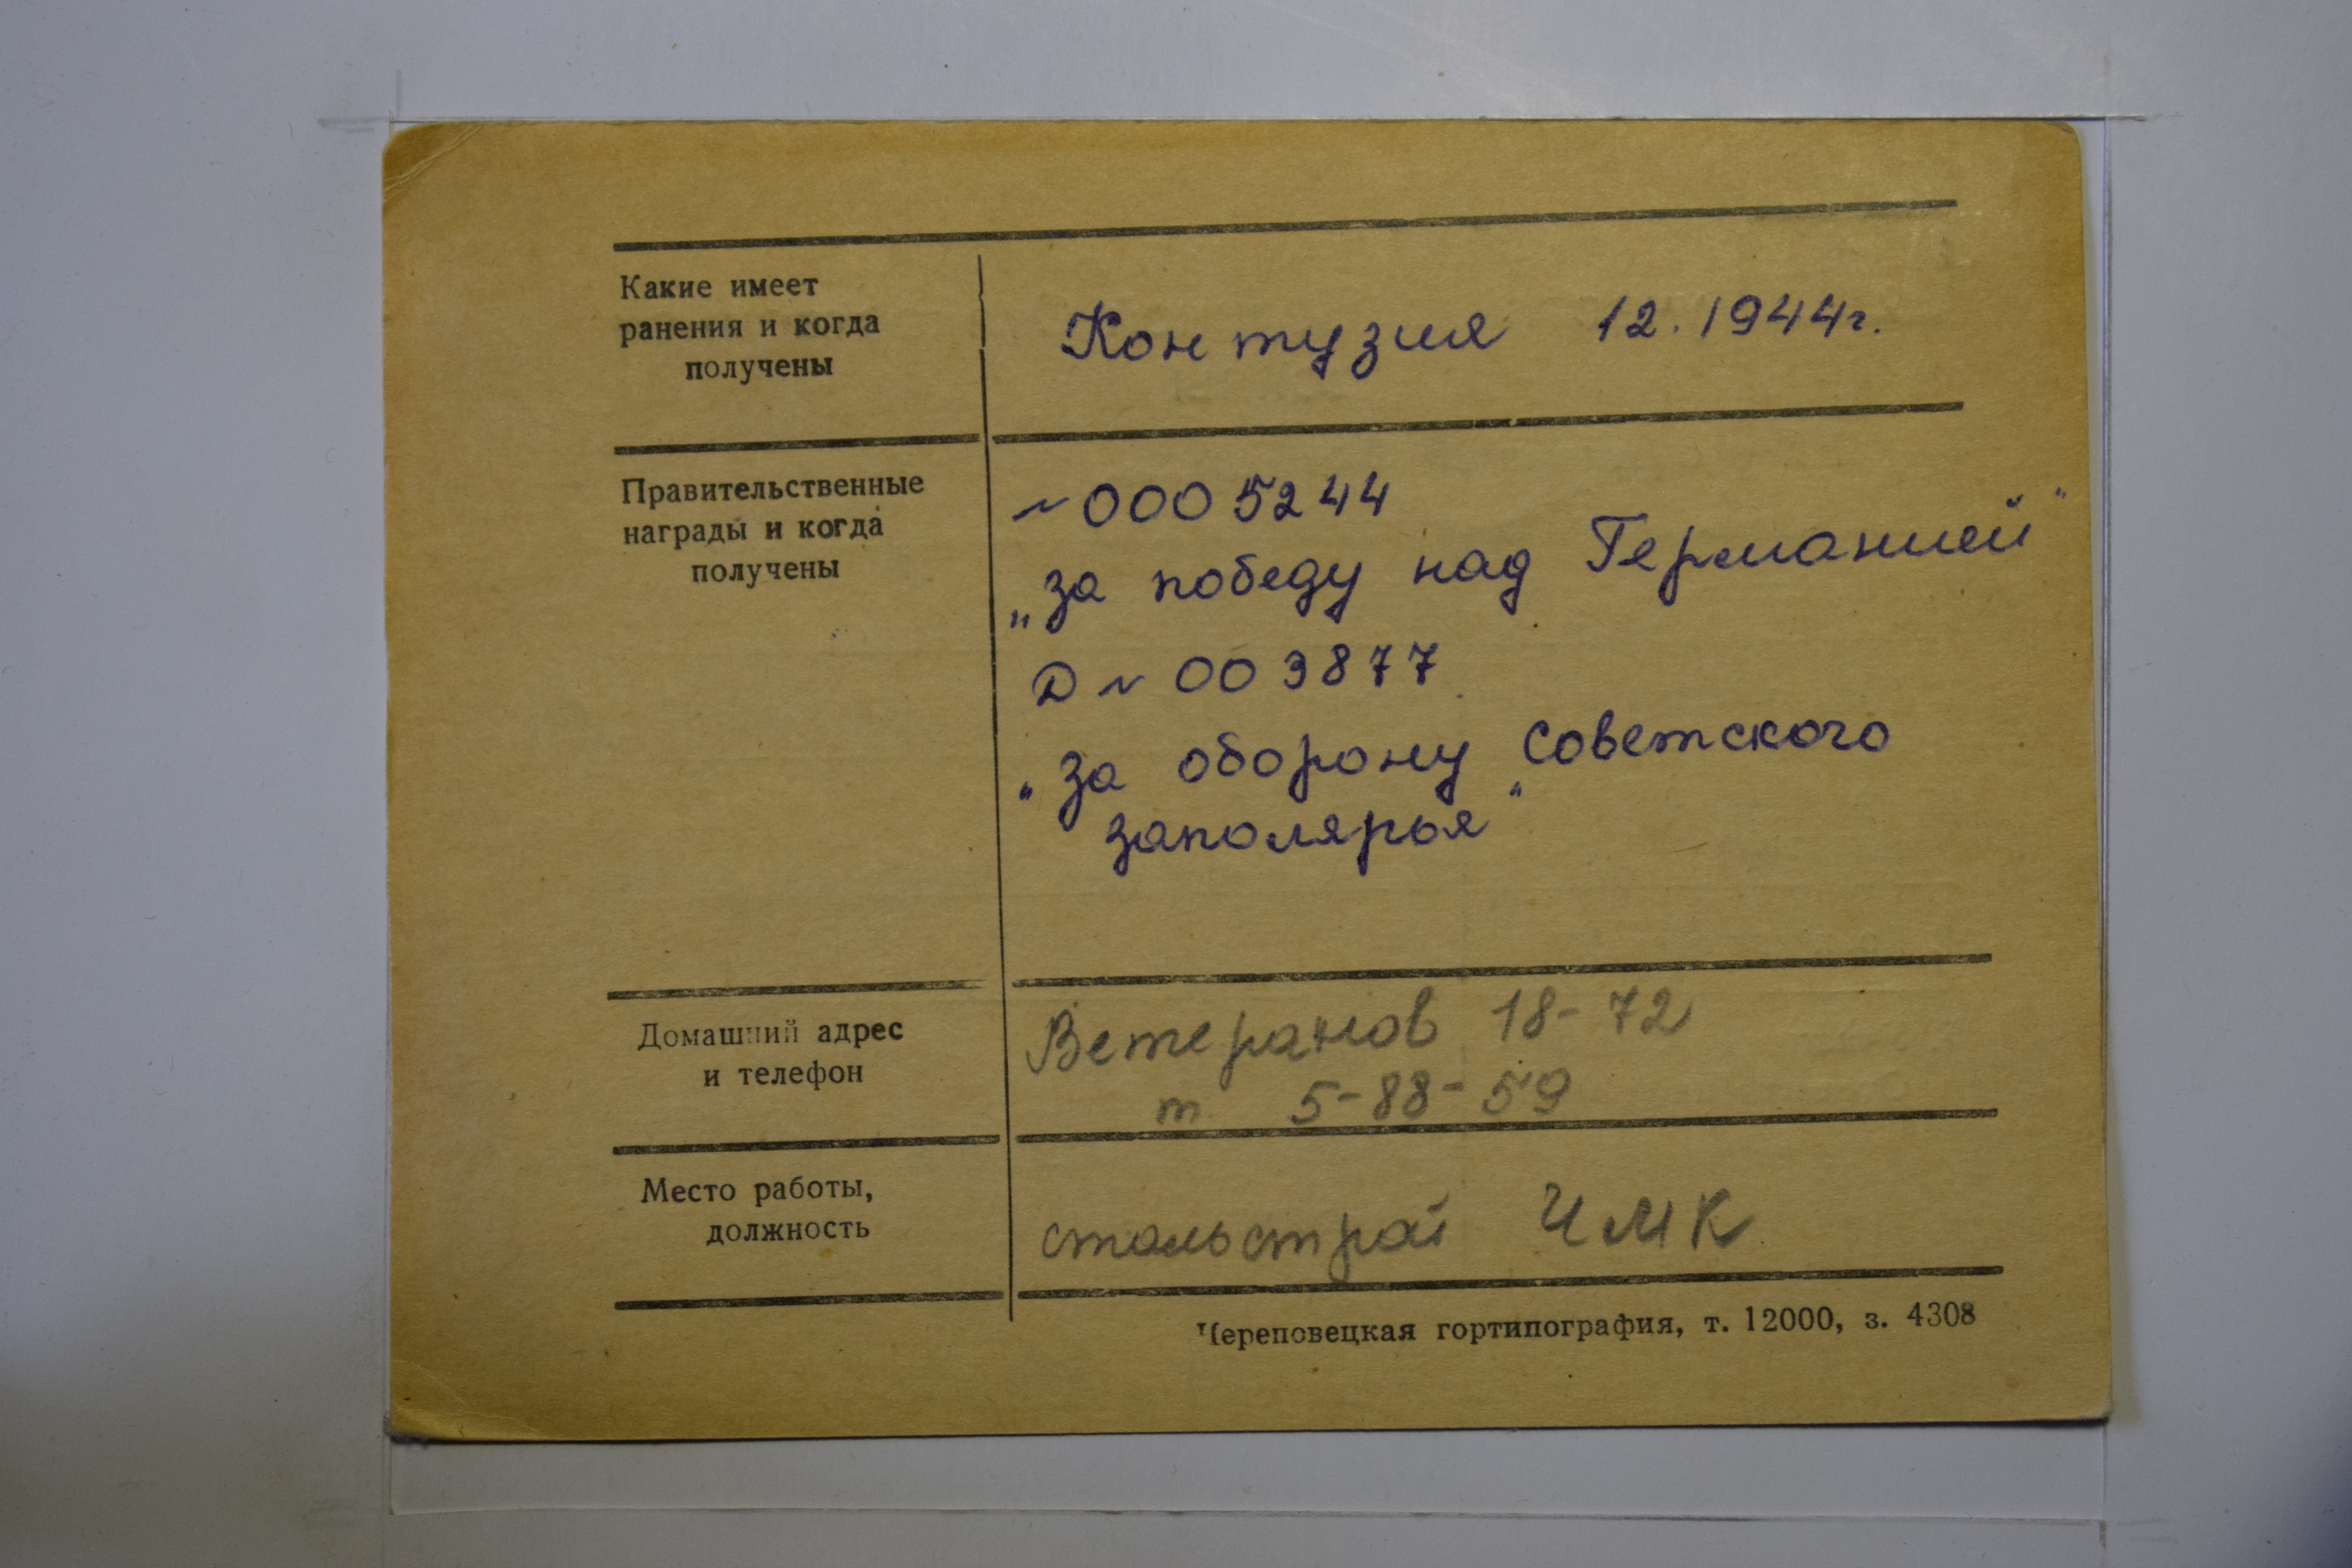 Какие имеет
ранения и когда
получены
Контузия 12.1944г.
Правительственные
награды и когда
получены
~ 0005244
„за победу над Германией"
Д ~ 003877
"за оборону советского
заполярья"
Домашний адрес
и телефон
Ветеранов 18-72
т 5-88-59
Место работы,
должность
стальстрой ЧМК
Череповецкая гортипография, т. 12000, з. 4308